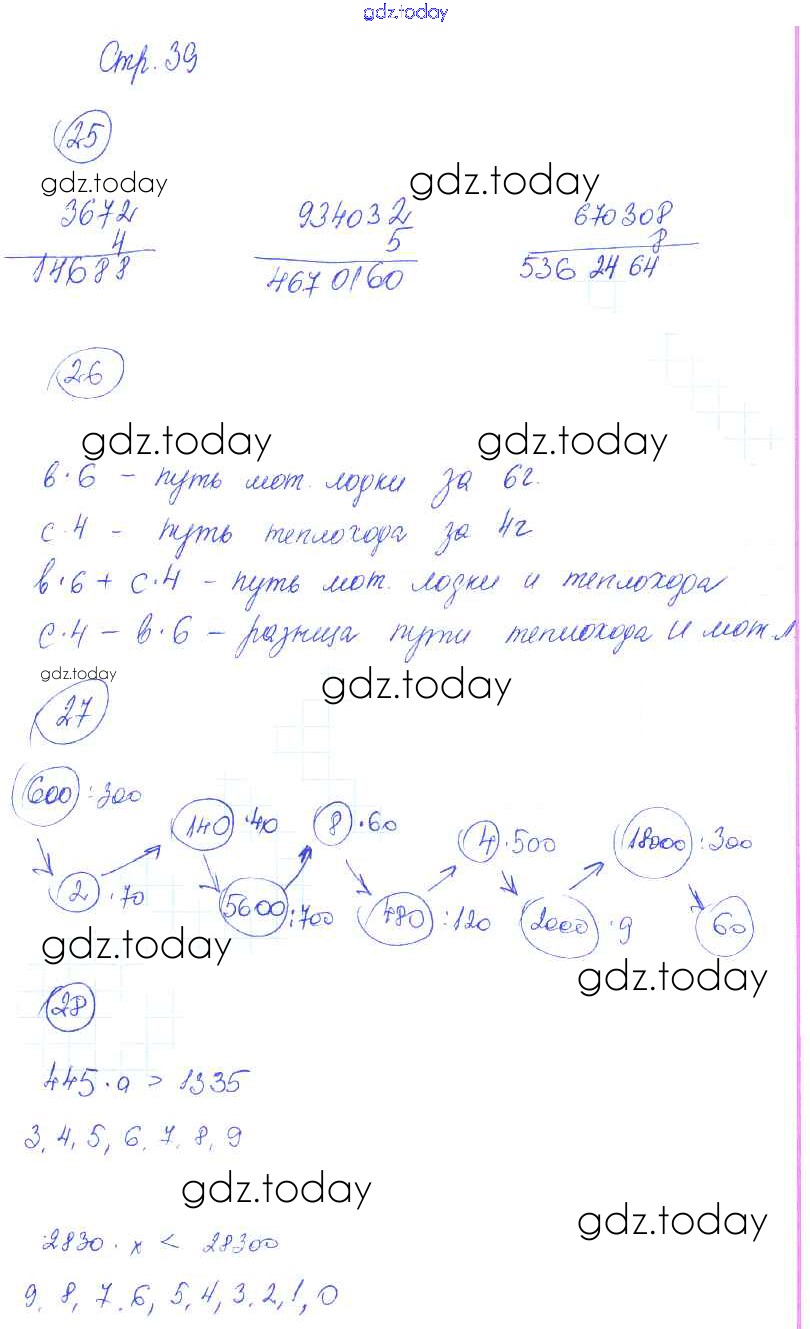 gdz.today
Стр. 39
25
gdz.today gdz.today
3672 934032 670308
4 5 8
14688 4670160 536 24 64
26
gdz.today gdz.today
в·6 – путь мот. лодки за 6г.
с·4 – путь теплохода за 4г
в·6 + с·4 – путь мот. лодки и теплохода
с·4 – в·6 – разница пути теплохода и мот л.
gdz.today gdz.today
27
600 :300 140 ·40 8 ·60 4 ·500 18000 :300
2 ·70 5600 :700 480 :120 2000 ·9 60
gdz.today gdz.today
28
445·а > 1335
3, 4, 5, 6, 7, 8, 9
gdz.today gdz.today
2830 · х < 28300
9, 8, 7, 6, 5, 4, 3, 2, 1, 0